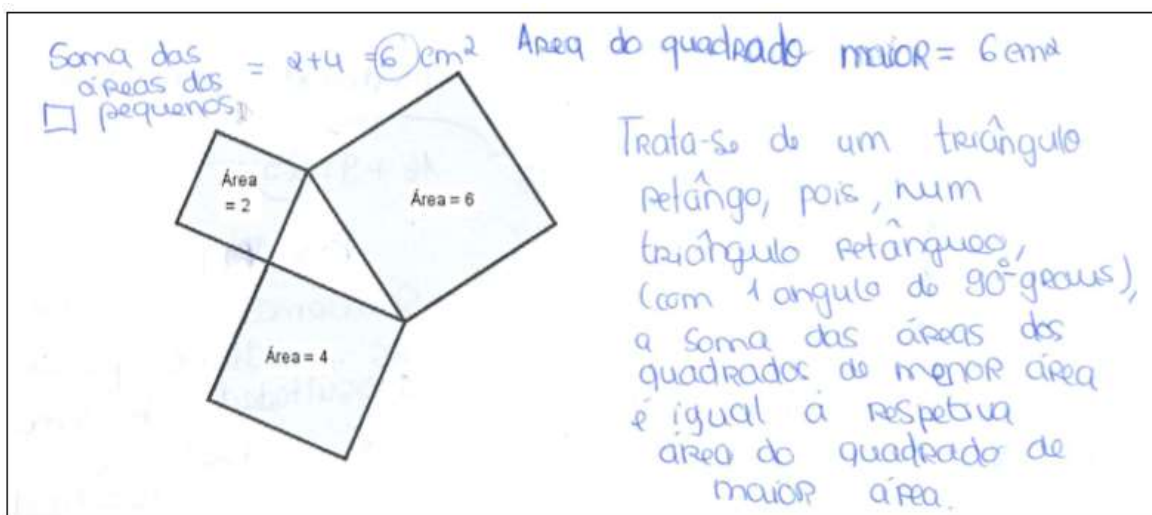 Soma das
áreas dos = 2+4 = 6 cm²
□ pequenos
Area do quadrado maior = 6 cm²
Área
= 2
Área = 6
Área = 4
Trata-se de um triângulo
retângo, pois, num
triângulo retânguео,
(com 1 angulo de 90º graus),
a soma das áreas dos
quadrados de menor área
é igual á respetiva
área do quadrado de
maior área.